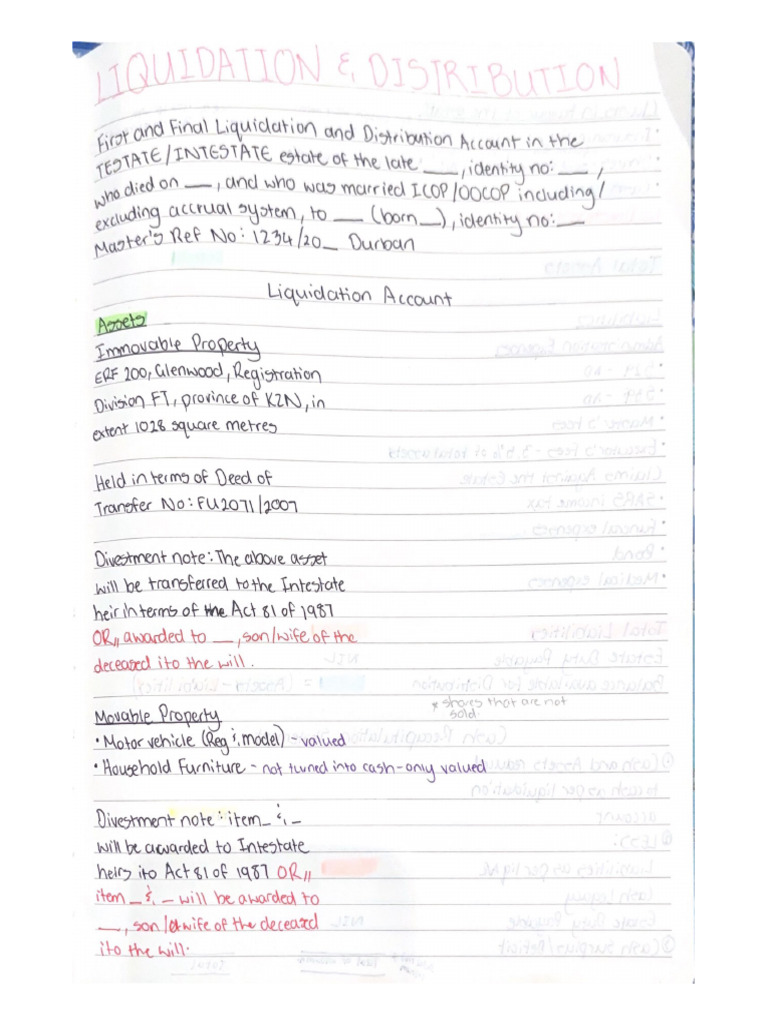 LIQUIDATION & DISTRIBUTION
First and Final Liquidation and Distribution Account in the
TESTATE/INTESTATE estate of the late ___, identity no: ___,
who died on ___, and who was married ICOP/OOCOP including/
excluding accrual system, to ___ (born_), identity no:___
Master's Ref No: 1234/20_ Durban
Liquidation Account
Assets
Immovable Property
ERF 200, Glenwood, Registration
Division FT, province of KZN, in
extent 1028 square metres
Held in terms of Deed of
Transfer No: FU2071/2007
Divestment note: The above asset
will be transferred to the Intestate
heir in terms of the Act 81 of 1987
OR,, awarded to ___, son/wife of the
deceased ito the will.
* shares that are not
sold.
Movable Property
• Motor vehicle (Reg & model) - valued
• Household Furniture - not turned into cash-only valued
Divestment note: item_ & _
will be awarded to Intestate
heirs ito Act 81 of 1987 OR,,
item _ & _ will be awarded to
___, son/wife of the deceased
ito the will.